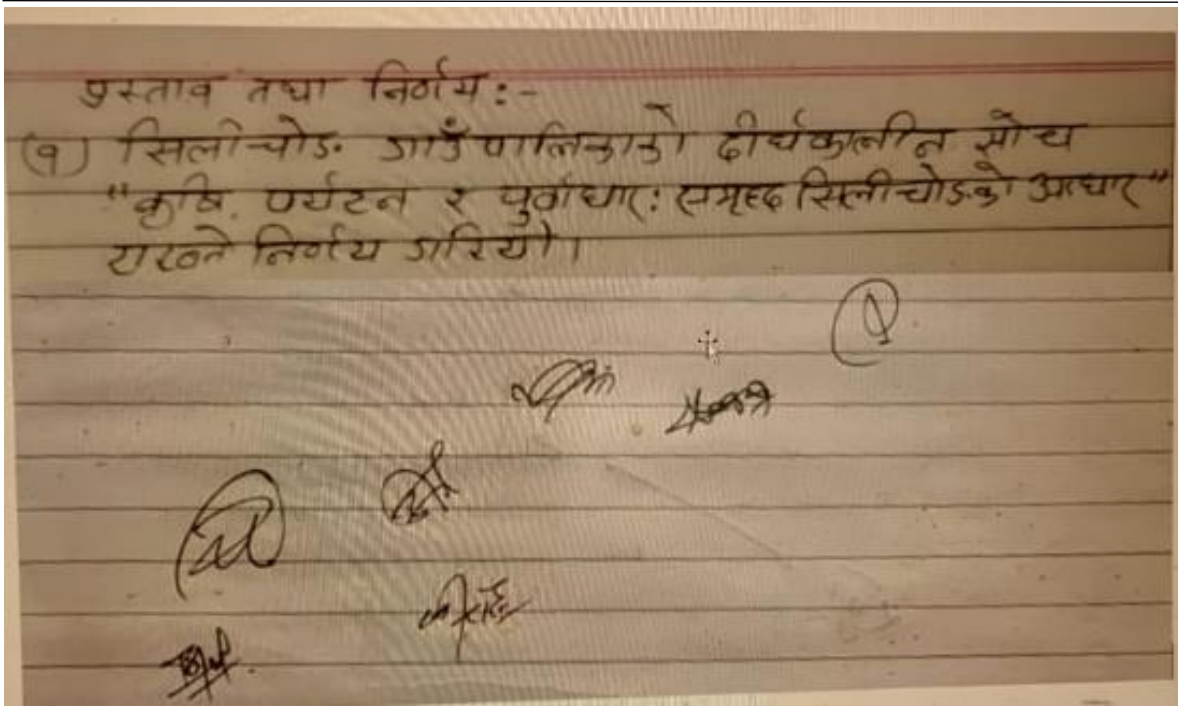 प्रस्ताव तथा निर्णय:-
(१) सिलीचोङ गाउँपालिकाको दीर्घकालीन सोच
"कृषि, पर्यटन र पुर्वाधार: समृद्द सिलीचोङको आधार"
राख्ने निर्णय गरियो।